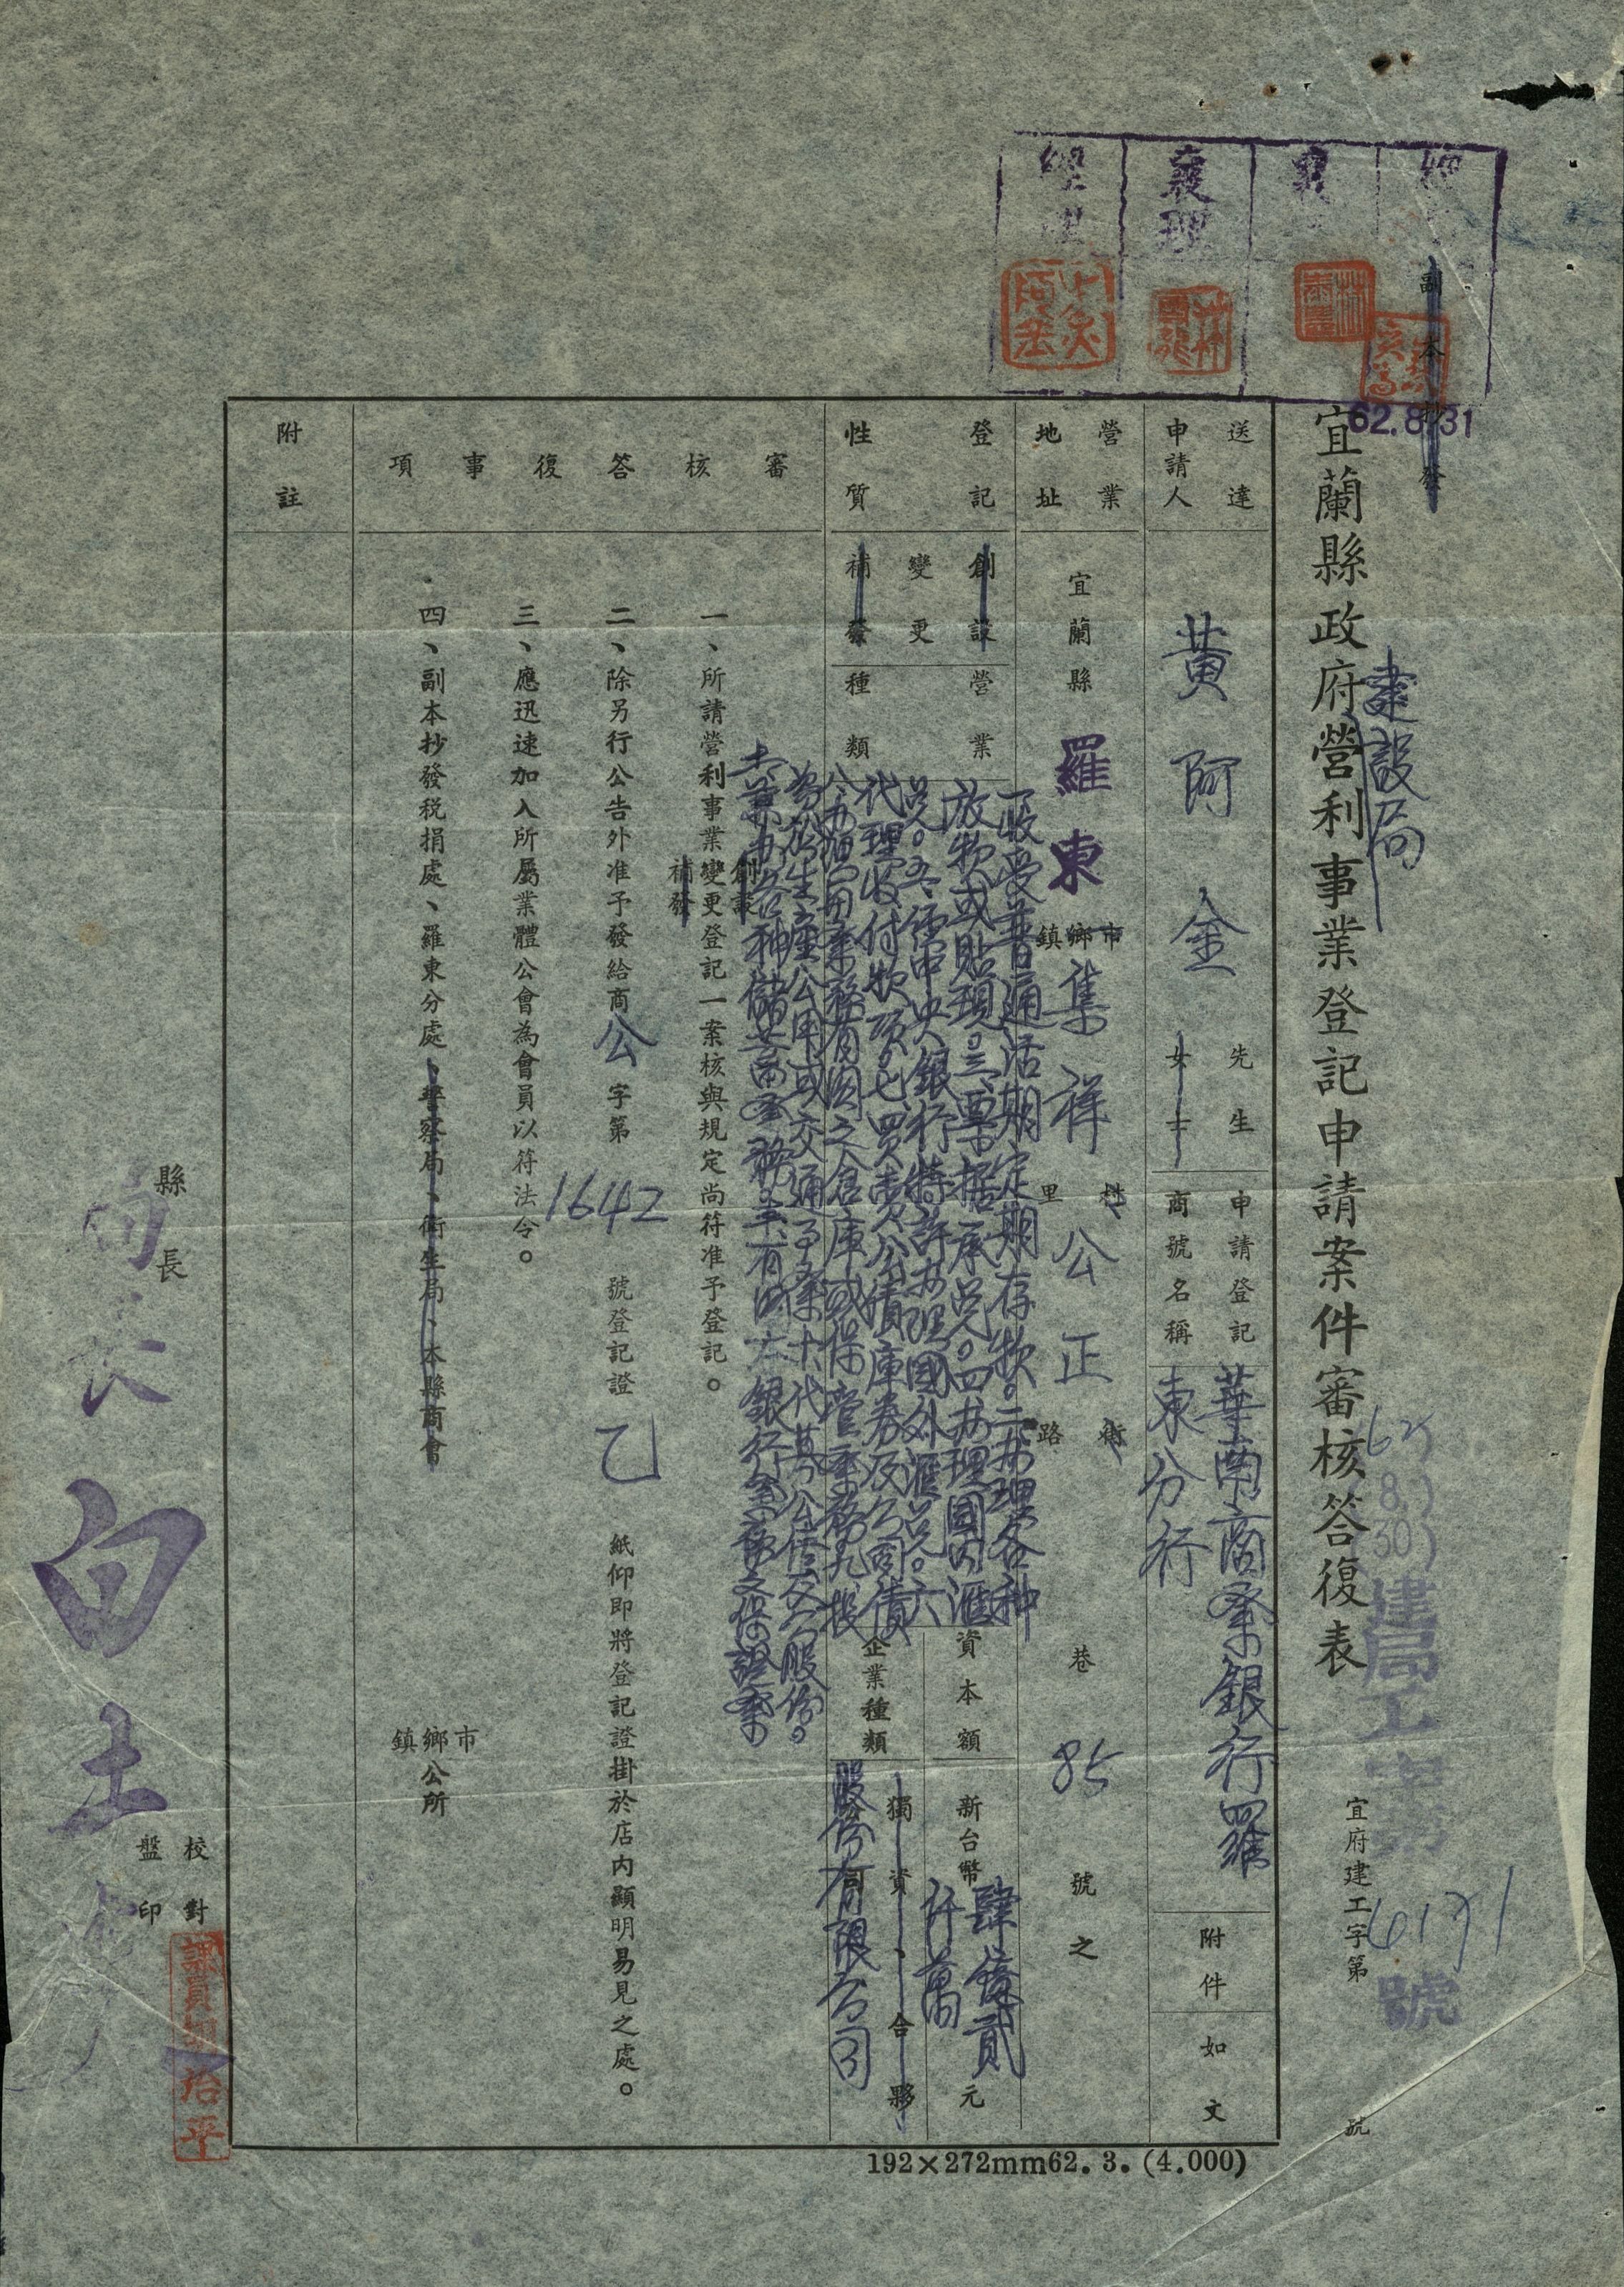 副本抄發
經理
襄理
襄
經
62.8.31
宜蘭縣政府營利事業登記申請案件審核答復表
建設局
62 8 30 建局工字第 6171 號
宜府建工字第 號
送達
申請人
黃阿金
先生
女士
申請登記
商號名稱
華南商業銀行羅
東分行
附件
如文
營業
地址
宜蘭縣
羅東
市
鄉
鎮
集祥
村
里
公正
街
路
巷
85
號之
登記
性質
創設
變更
補發
營業
種類
一收受普通活期定期存款。二办理各种
放款或貼現。三票据承兌。四办理國內滙
兌。五經中央銀行特許办理國外滙兌。六
代理收付款項。七買賣公債庫券及公司債
八办理與業務有關之倉庫或保管業務九投
資於生產公用或交通事業十代募公債及公司股份。
十一兼办各种儲蓄業務 十二有關銀行業務之保證業
資本額
新台幣
肆億貳
仟萬
元
企業種類
獨資、合夥
公司
股份有限公司
審核答復事項
一、所請營利事業
創設
變更
補發
登記一案核與規定尚符准予登記。
二、除另行公告外准予發給商公字第1642號登記證乙紙仰即將登記證掛於店內顯明易見之處。
三、應迅速加入所屬業體公會為會員以符法令。
四、副本抄發稅捐處、羅東分處、警察局、衛生局、本縣商會
市
鄉
鎮
公所
附註
縣長
局長白土
校對
盤印
192×272mm62.3.(4.000)